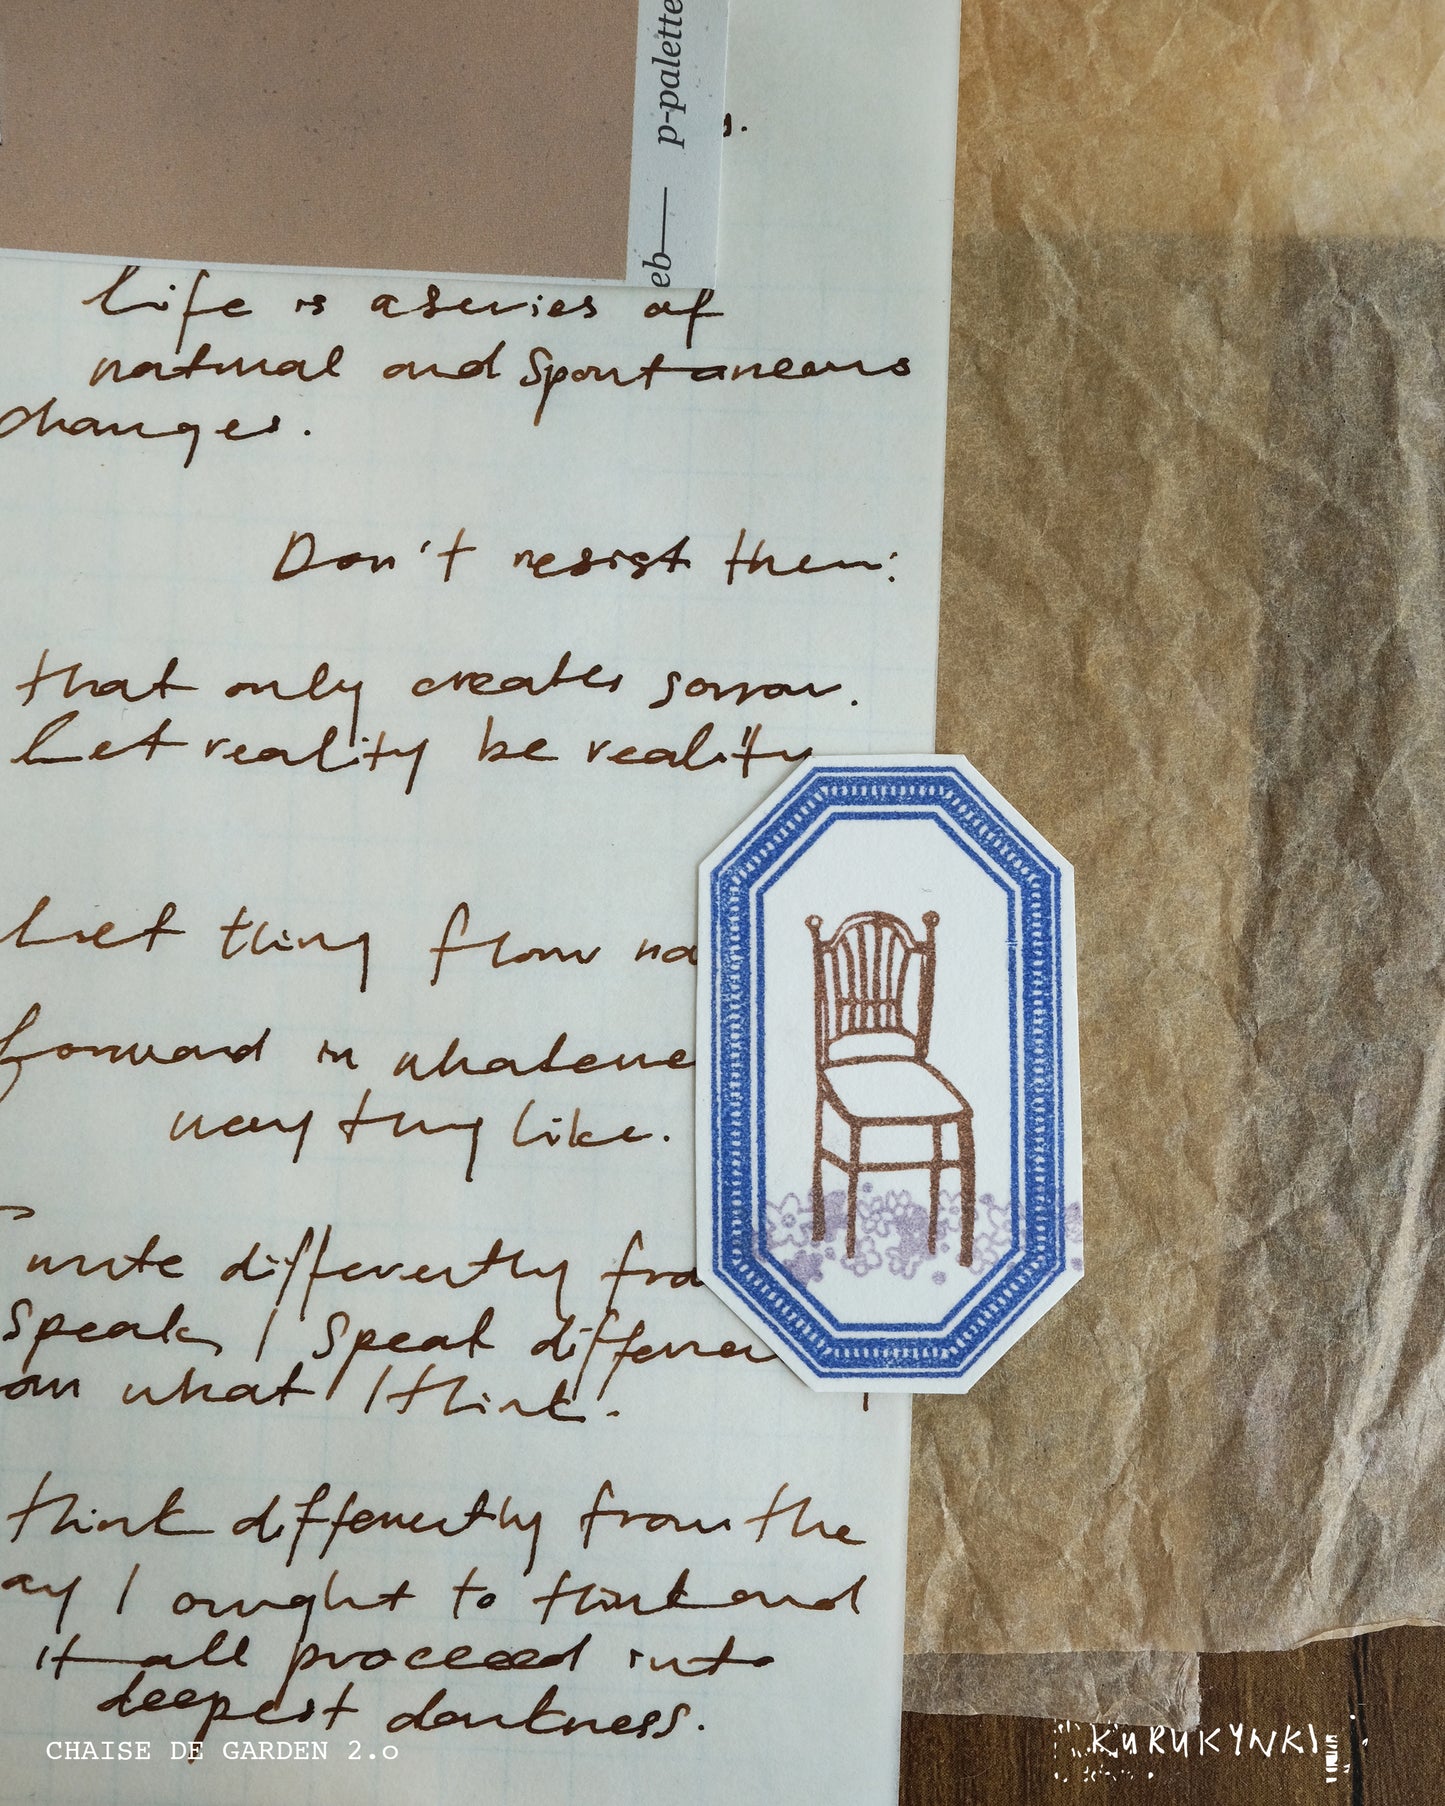 p-palette
eb
life is a series of
natural and spontaneous
changes.
Don't resist them:
that only creates sorrow.
Let reality be reality
Let thing flow na
forward in whateve
way they like.
write differently fro
speak, I speak differen
om what I think.
think differently from the
ay I ought to think and
it all proceed into
deepest darkness.
CHAISE DE GARDEN 2.0
KURUKYNKI